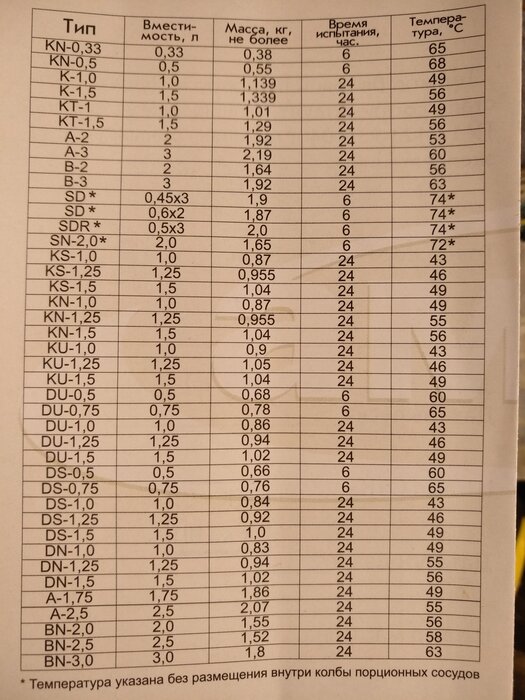 Тип Вмести-мость, л Масса, кг, не более Время испытания, час. Темпера-тура, °С
KN-0,33 0,33 0,38 6 65
KN-0,5 0,5 0,55 6 68
K-1,0 1,0 1,139 24 49
K-1,5 1,5 1,339 24 56
KT-1 1,0 1,01 24 49
KT-1,5 1,5 1,29 24 56
A-2 2 1,92 24 53
A-3 3 2,19 24 60
B-2 2 1,64 24 56
B-3 3 1,92 24 63
SD* 0,45x3 1,9 6 74*
SD* 0,6x2 1,87 6 74*
SDR* 0,5x3 2,0 6 74*
SN-2,0* 2,0 1,65 6 72*
KS-1,0 1,0 0,87 24 43
KS-1,25 1,25 0,955 24 46
KS-1,5 1,5 1,04 24 49
KN-1,0 1,0 0,87 24 49
KN-1,25 1,25 0,955 24 55
KN-1,5 1,5 1,04 24 56
KU-1,0 1,0 0,9 24 43
KU-1,25 1,25 1,05 24 46
KU-1,5 1,5 1,04 24 49
DU-0,5 0,5 0,68 6 60
DU-0,75 0,75 0,78 6 65
DU-1,0 1,0 0,86 24 43
DU-1,25 1,25 0,94 24 46
DU-1,5 1,5 1,02 24 49
DS-0,5 0,5 0,66 6 60
DS-0,75 0,75 0,76 6 65
DS-1,0 1,0 0,84 24 43
DS-1,25 1,25 0,92 24 46
DS-1,5 1,5 1,0 24 49
DN-1,0 1,0 0,83 24 49
DN-1,25 1,25 0,94 24 55
DN-1,5 1,5 1,02 24 56
A-1,75 1,75 1,86 24 49
A-2,5 2,5 2,07 24 55
BN-2,0 2,0 1,55 24 56
BN-2,5 2,5 1,52 24 58
BN-3,0 3,0 1,8 24 63
* Температура указана без размещения внутри колбы порционных сосудов